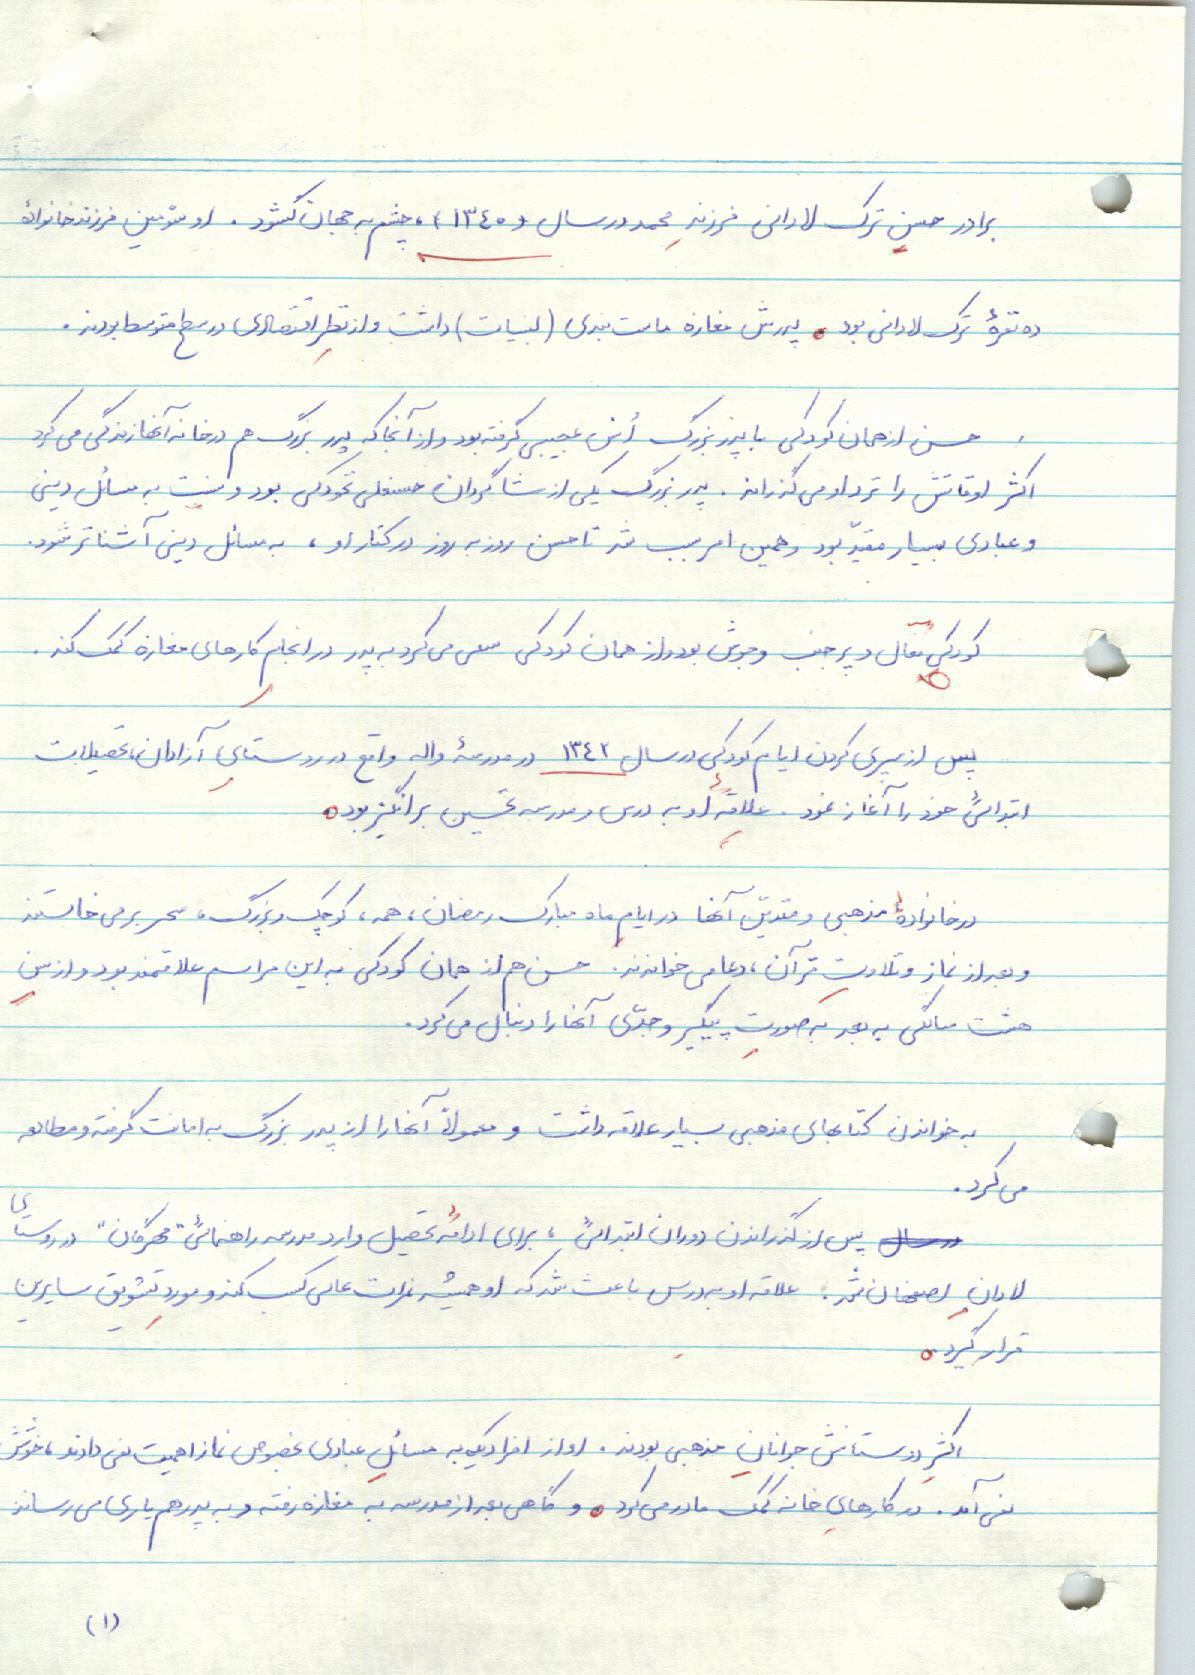 برادر حسن ترک لادانی فرزندِ محمد در سال (۱۳۴۰)، چشم به جهان گشود . او سوّمین فرزند خانوادهٔ
ده نفرهٔ ترک لادانی بود . پدرش مغازه ماست بندی (لبنیات) داشت و از نظرِ اقتصادی در سطح متوسط بودند .
حسن از همان کودکی با پدر بزرگ اُنس عجیبی گرفته بود و از آنجا که پدر بزرگ هم در خانه آنها زندگی می کرد
اکثر اوقاتش را نزد او می گذراند . پدر بزرگ یکی از شاگردان حسنعلی نخودکی بود و نسبت به مسائل دینی
و عبادی بسیار مقیّد بود و همین امر سبب شد تا حسن روز به روز در کنار او ، به مسائل دینی آشناتر شود.
کودکی فعّال و پر جنب و جوش بود و از همان کودکی سعی می کرد به پدر در انجام کارهای مغازه کمک کند .
پس از سپری کردن ایام کودکی در سال ۱۳۴۲ در مدرسهٔ واله واقع در روستایِ آزادان، تحصیلات
ابتدائی خود را آغاز نمود . علاقهٔ او به درس و مدرسه تحسین برانگیز بود.
در خانوادهٔ مذهبی و متدیّن آنها در ایامِ ماه مبارک رمضان، همه، کوچک و بزرگ، سحر بر می خاستند
و بعد از نماز و تلاوتِ قرآن، دعا می خواندند. حسن هم از همان کودکی به این مراسم علاقمند بود و از سنِ
هشت سالگی به بعد به صورتِ پیگیر و جدّی آنها را دنبال می کرد.
به خواندن کتابهای مذهبی بسیار علاقه داشت و معمولاً آنها را از پدر بزرگ به امانت گرفته و مطالعه
می کرد.
در سال پس از گذراندن دوران ابتدائی ، برای ادامهٔ تحصیل وارد مدرسه راهنمائی "مهرگان" در روستای
لادانِ اصفهان شد. علاقه او به درس باعث شد که او همیشه نمرات عالی کسب کند و مورد تشویقِ سایرین
قرار گیرد.
اکثرِ دوستانش جوانانِ مذهبی بودند . او از افرادیکه به مسائلِ عبادی بخصوص نماز اهمیت نمی دادند، خوشش
نمی آمد . در کارهایِ خانه کمک مادر می کرد . و گاهی بعد از مدرسه به مغازه رفته و به پدر هم یاری می رساند
(۱)